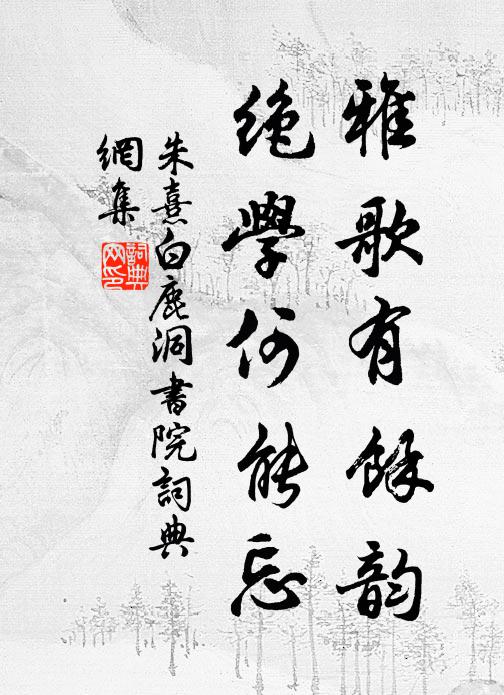 雅歌有餘韵
絶學何能忘
朱熹白鹿洞書院詞典
網集
詞典
网印